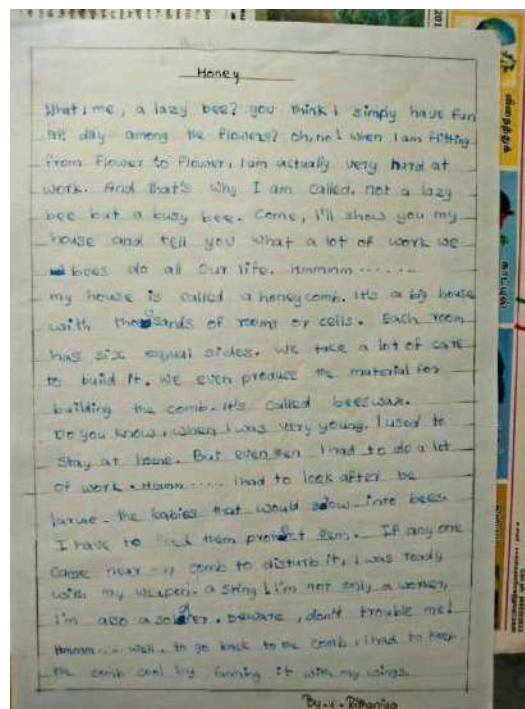 Honey
What! me, a lazy bee? you think I simply have fun
all day among the flowers? Oh, no! When I am flitting
from flower to flower, I am actually very hard at
work. And that's why I am called, not a lazy
bee but a busy bee. Come, I'll show you my
house and tell you what a lot of work we
bees do all our life. Hmmmm ......
my house is called a honeycomb. It's a big house
with thousands of rooms or cells. Each room
has six equal sides. we take a lot of care
to build it. We even produce the material for
building the comb. It's called beeswax.
Do you know, when I was very young, I used to
stay at home. But even then I had to do a lot
of work. Hmmm ..... I had to look after be
larvae - the babies that would grow into bees.
I have to feed them protect them. If any one
came near comb to disturb it, I was ready
with my weapen. a sting! I'm not only a worker,
I'm also a soldier. beware, don't trouble me!
Hmmmm .... well, to go back to the comb, I had to keep
the comb cool by fanning it with my wings.
By